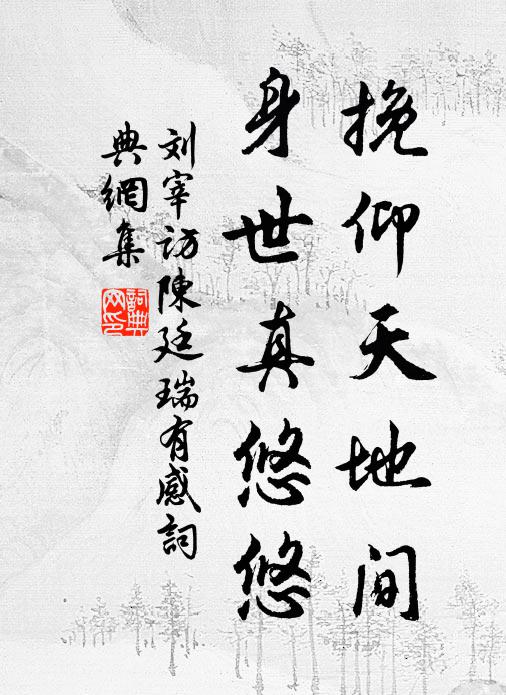 挽仰天地间
身世真悠悠
刘宰访陳廷瑞有感詞
典網集
詞典
网印